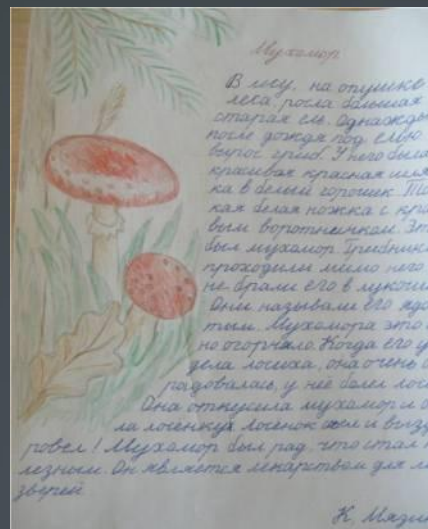 Мухомор
В лесу, на опушке
леса, росла большая
старая ель. Однажды
после дождя под елью
вырос гриб. У него была
красивая красная шляп
ка в белый горошек. То
кая белая ножка с кра
вым воротничком. Эт
был мухомор. Грибник
проходили мимо него
не брали его в лукош
Они называли его ядо
тым. Мухомора это
но огорчало. Когда его у
дела лосиха, она очень о
радовалась, у неё болел лос
Она откусила мухомор и
ла лосёнку. Лосёнок съел и вызд
ровел! Мухомор был рад, что стал
лезным. Он является лекарством для
зверей.
К. Мязин